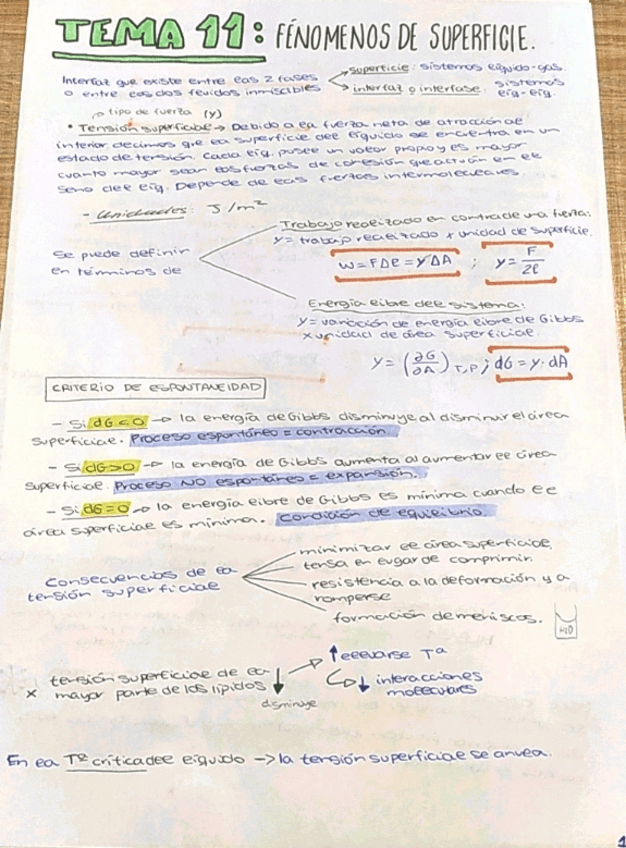 TEMA 11: FENOMENOS DE SUPERFICIE.
Interfaz que existe entre las 2 fases
o entre los dos fluidos inmiscibles
superficie: sistemas líquido-gas.
interfaz o interfase: sistemas
líq-líq.
tipo de fuerza (γ)
• Tensión superficial → Debido a la fuerza neta de atracción al
interior decimos que la superficie del líquido se encuentra en un
estado de tensión. Cada líq. posee un valor propio y es mayor
cuanto mayor sean las fuerzas de cohesión que actúan en el
seno del líq. Depende de las fuerzas intermoleculares.
- Unidades: J/m²
Se puede definir
en términos de
Trabajo realizado en contra de una fuerza:
γ = trabajo realizado x unidad de superficie.
W = F Δl = γ ΔA ; γ = F / 2l
Energía libre del sistema:
γ = variación de energía libre de Gibbs
x unidad de área superficial.
γ = (∂G/∂A) T,P ; dG = γ · dA
CRITERIO DE ESPONTANEIDAD
- Si dG < 0 → la energía de Gibbs disminuye al disminuir el área
superficial. Proceso espontáneo = contracción
- Si dG > 0 → la energía de Gibbs aumenta al aumentar el área
superficial. Proceso NO espontáneo = expansión.
- Si dG = 0 → la energía libre de Gibbs es mínima cuando el
área superficial es mínima. Condición de equilibrio.
Consecuencias de la
tensión superficial
minimizar el área superficial,
tensa en lugar de comprimir.
resistencia a la deformación y a
romperse
formación de meniscos.
H2O
x tensión superficial de la
mayor parte de los líquidos ↓
disminuye
↑ elevarse Tª
↓ interacciones
moleculares
En la Tª crítica del líquido → la tensión superficial se anula.
1